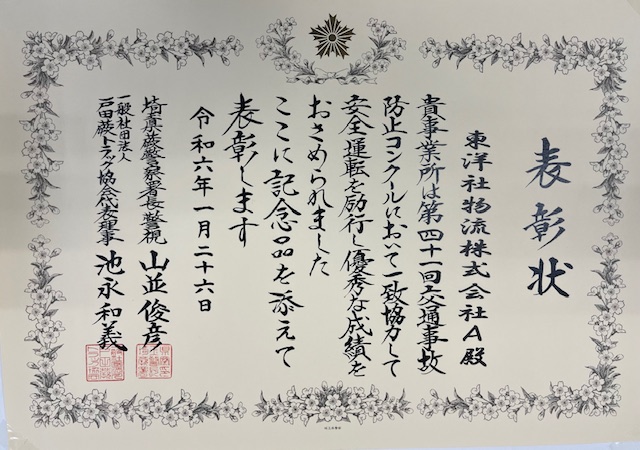 表彰状
東洋社物流株式会社A殿
貴事業所は第四十一回交通事故
防止コンクールにおいて一致協力して
安全運転を励行し優秀な成績を
おさめられました
ここに記念品を添えて
表彰します
令和六年一月二十六日
埼玉県蕨警察署長警視 山並俊彦
一般社団法人
戸田蕨トラック協会代表理事 池永和義